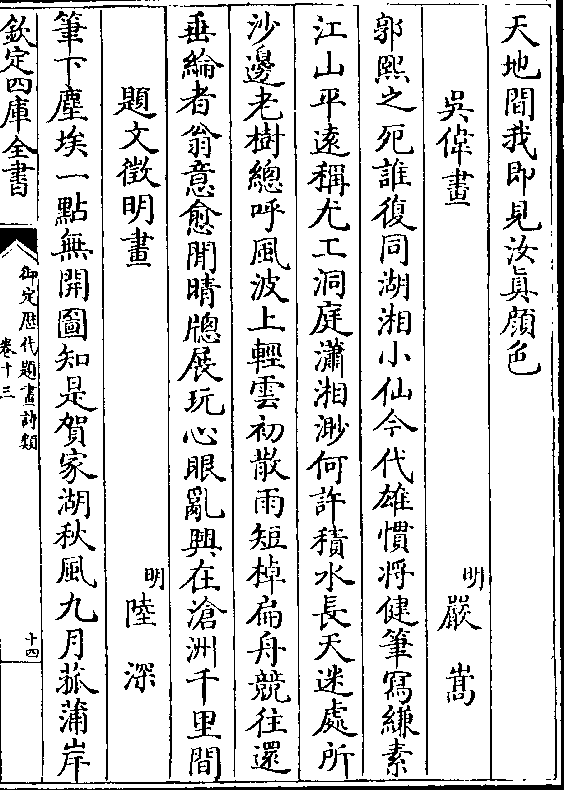 天地間我即見汝真顔色
吳偉畫
明嚴嵩
郭熙之死誰復同湖湘小仙今代雄慣將健筆寫縑素
江山平遠稱尤工洞庭瀟湘渺何許積水長天迷處所
沙邊老樹總呼風波上輕雲初散雨短棹扁舟競往還
垂綸者翁意愈閒晴牎展玩心眼亂興在滄洲千里間
題文徵明畫
明陸深
筆下塵埃一點無開圖知是賀家湖秋風九月菰蒲岸
欽定四庫全書
御定歴代題畫詩類
卷十三
十四